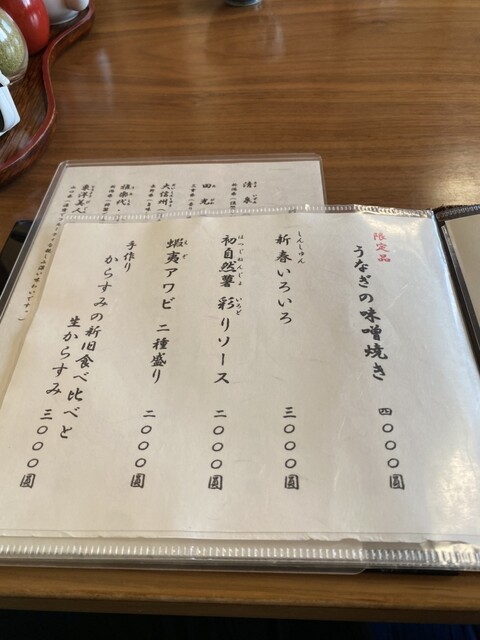 限定品
うなぎの味噌焼き 四〇〇〇圓
しんしゅん
新春いろいろ 三〇〇〇圓
はつじねんじょ いろど
初自然薯 彩りソース 二〇〇〇圓
えぞ
蝦夷アワビ 二種盛り 二〇〇〇圓
手作り
からすみの新旧食べ比べと
生からすみ 三〇〇〇圓
清泉
田光
大信州
雅楽代
東洋美人